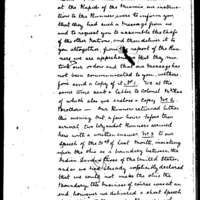 at the Rapids of the Miamis, our instruc-
tions to the Runners were to inform you
that they had such a Message from us
and to request you to assemble the Chiefs
of the other Nations, and then deliver it to
you altogether, from the report of the Run-
ners we are apprehensive that they mis-
took our orders and that our Message has
not been communicated to you, we there-
fore send a copy of it No 1. We at the
same time sent a letter to Colonel McKee
of which also we enclose a copy No 2
Brothers - Our Runners returned hither
this morning but a few hours before
several two Wyandot Runners arrived
here with a written answer No 3 to our
Speech of the 31st of last Month, insisting
upon the Ohio as a boundary between the
Indian Lands & those of the United States
and as we had already explicitly declared
that we could not make the Ohio the
Boundary, the business of course was at an
end, however we delivered a short Speech